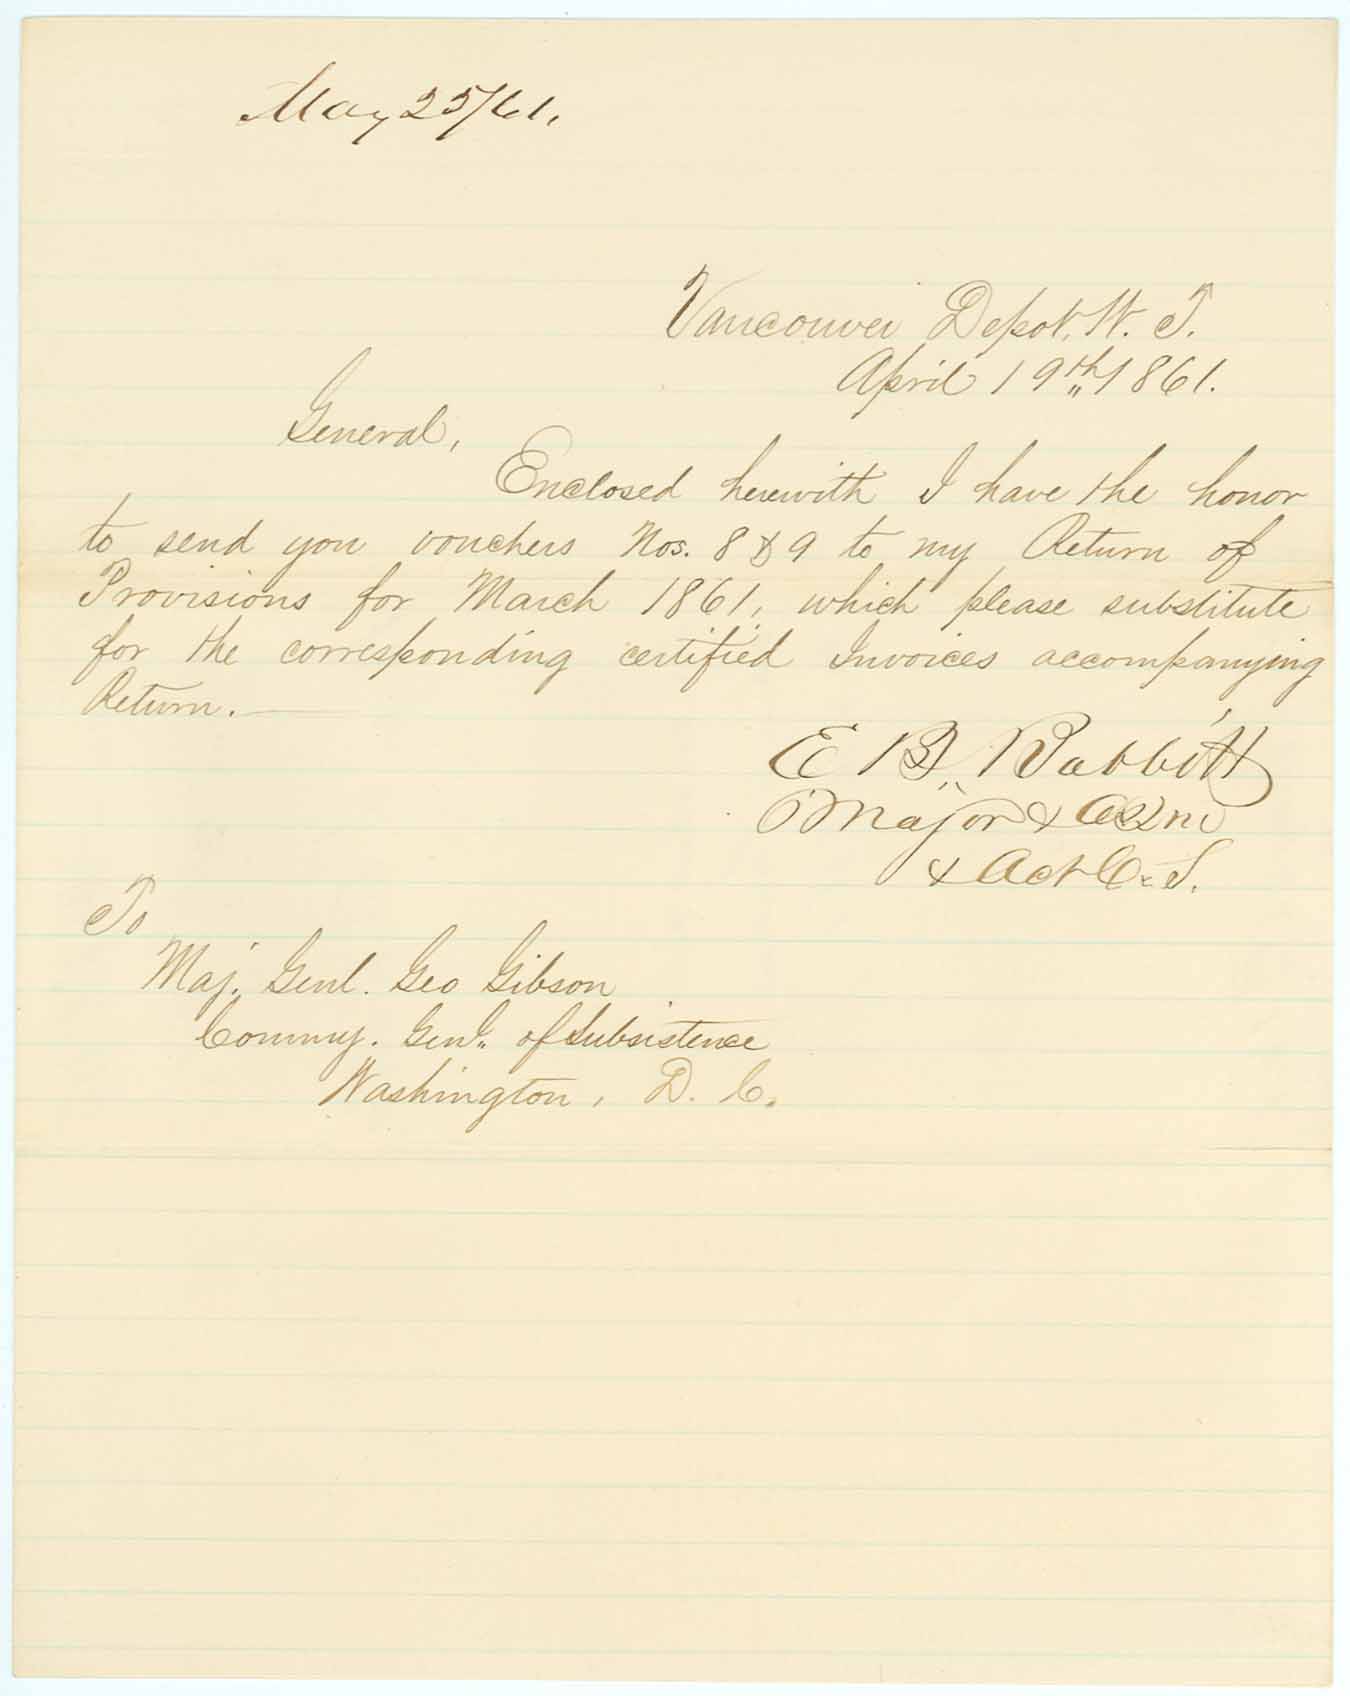 May 25/61.
Vancouver Depot, W. T.
April 19th 1861.
General,
Enclosed herewith I have the honor
to send you vouchers Nos. 8 & 9 to my Return of
Provisions for March 1861, which please substitute
for the corresponding certified Invoices accompanying
Return. —
E B. Babbitt
Major & AQM
& Act C. S.
To
Maj. Genl. Geo Gibson
Commy. Genl. of Subsistence
Washington, D. C.